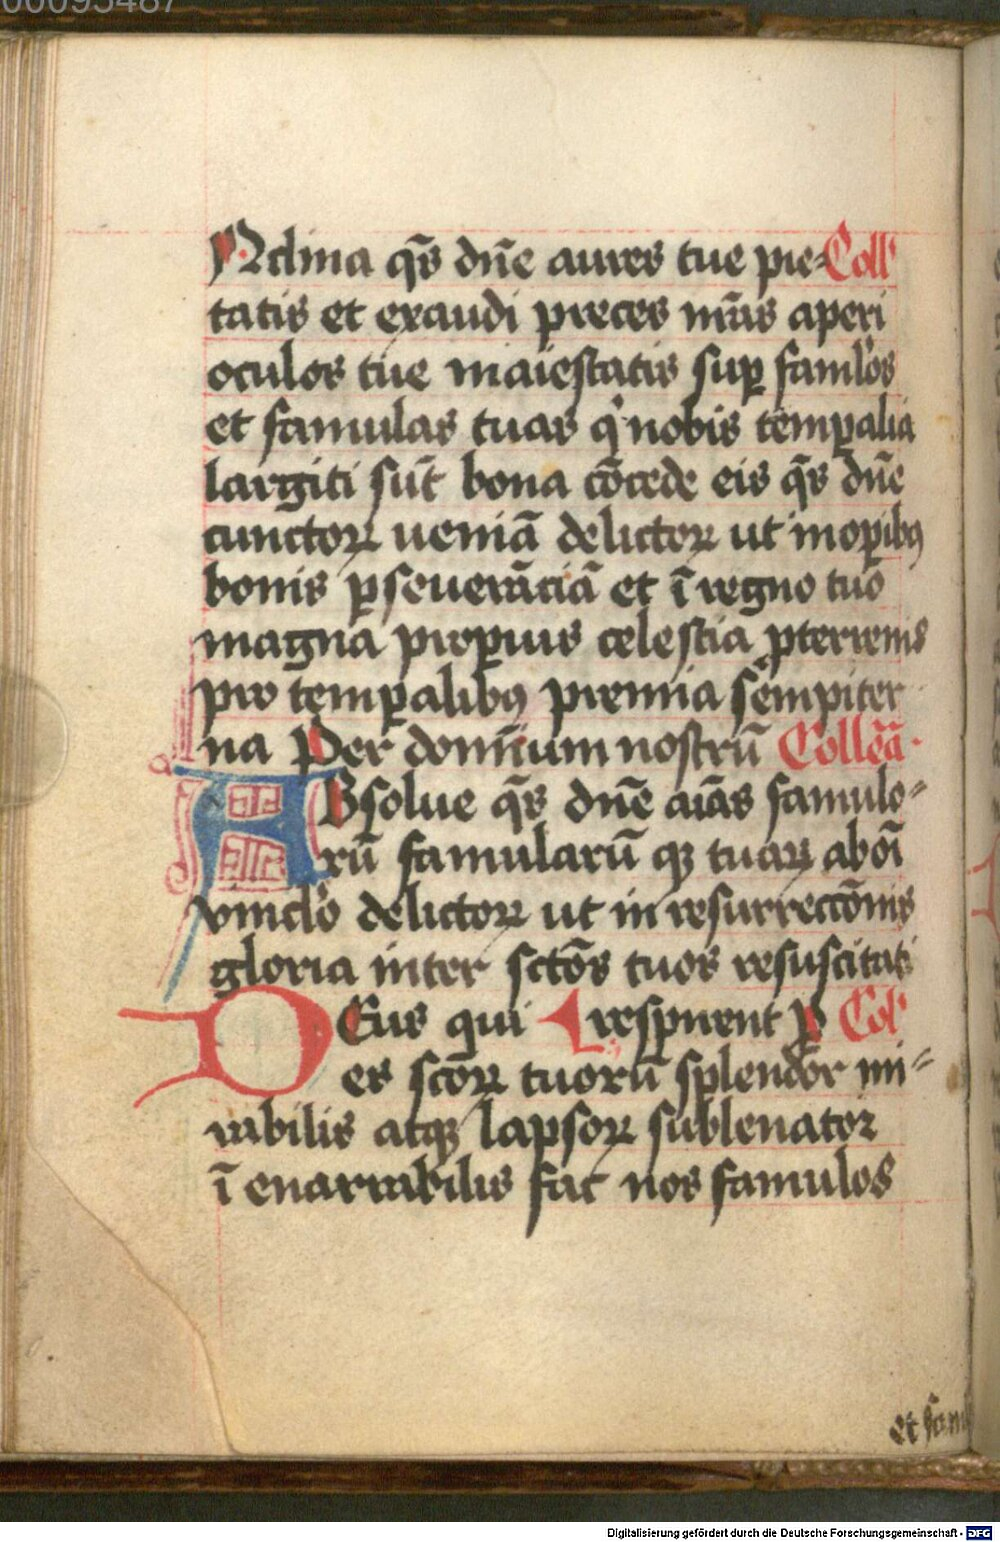 00095487
INclina q̄s dn̄e aures tue pie- Coll'
tatis et exaudi preces nr̄as aperi
oculos tue maiestatis sup famlos
et famulas tuas q' nobis temp̄alia
largiti sūt bona cōcede eis q̄s dn̄e
cunctoꝝ ueniā delictoꝝ ut in oꝑibꝯ
bonis ꝑseuerāciā et ī regno tuo
magna propius celestia
pro temꝑalibꝯ premia sempiter
na Per dominum nostrū Collēa
ABsolue q̄s dn̄e aīas famulo-
rū famularū qꝫ tuaꝝ ab oī
vinclo delictoꝝ ut in resurrectōnis
gloria inter sctōs tuos resuscitati
DEus qui respirent ꝑ Col'
es scōꝝ tuorū splendor mi-
rabilis atqꝫ lapsoꝝ subleuator
ī enarrabilis fac nos famulos
et fam
Digitalisierung gefördert durch die Deutsche Forschungsgemeinschaft - DFG